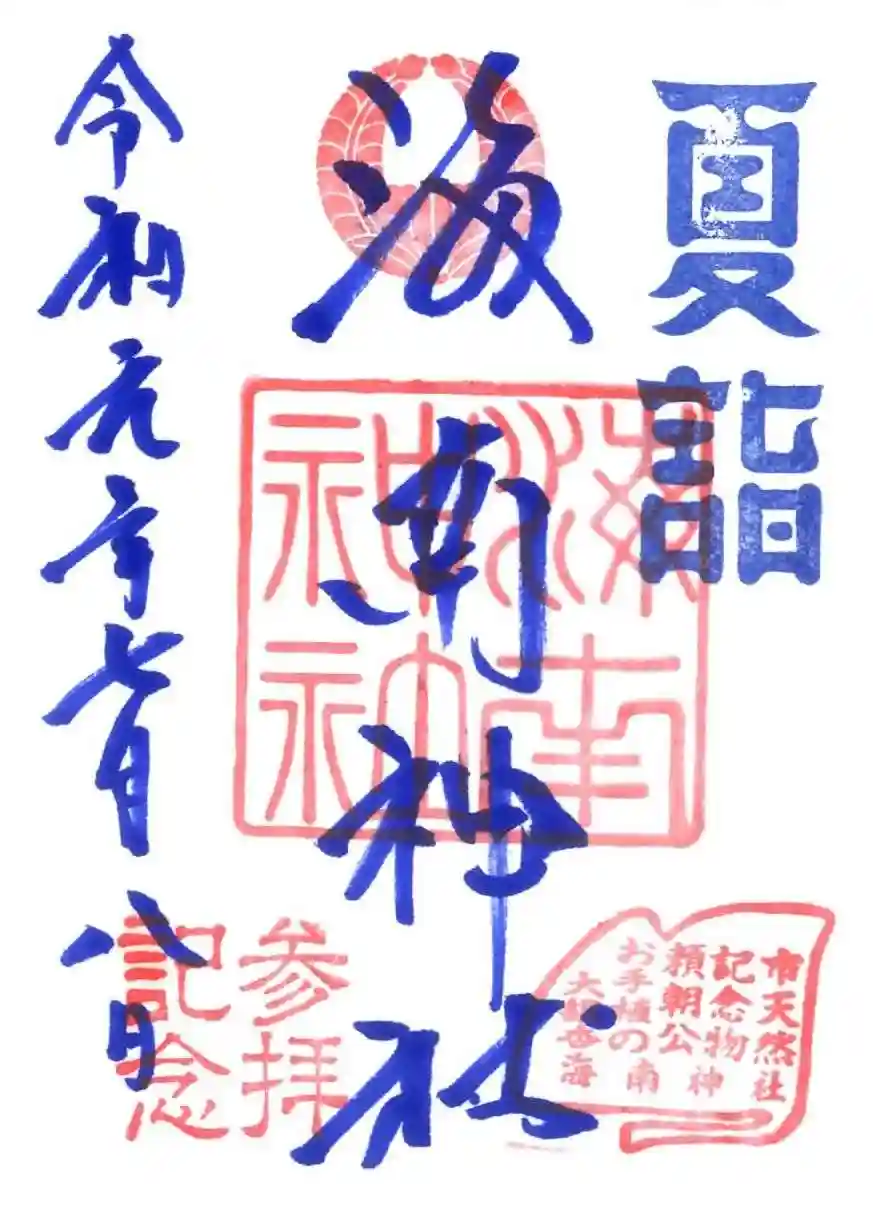 夏詣
海南神社
海南
神社
市天然
記念物
頼朝公
お手植の
大銀杏
海南神社
参拝
記念
令和元年七月八日